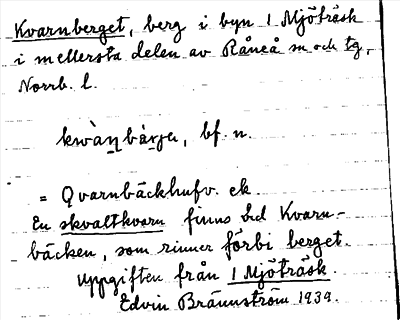 Kvarnberget, berg i byn 1 Mjöträsk
i mellersta delen av Råneå sn och tg,
Norrb. l.
bf. n.
= Qvarnbäckhufv. ek.
En skvaltkvarn finns vid Kvarn-
bäcken, som rinner förbi berget.
Uppgiften från 1 Mjöträsk.
Edvin Brännström 1939.